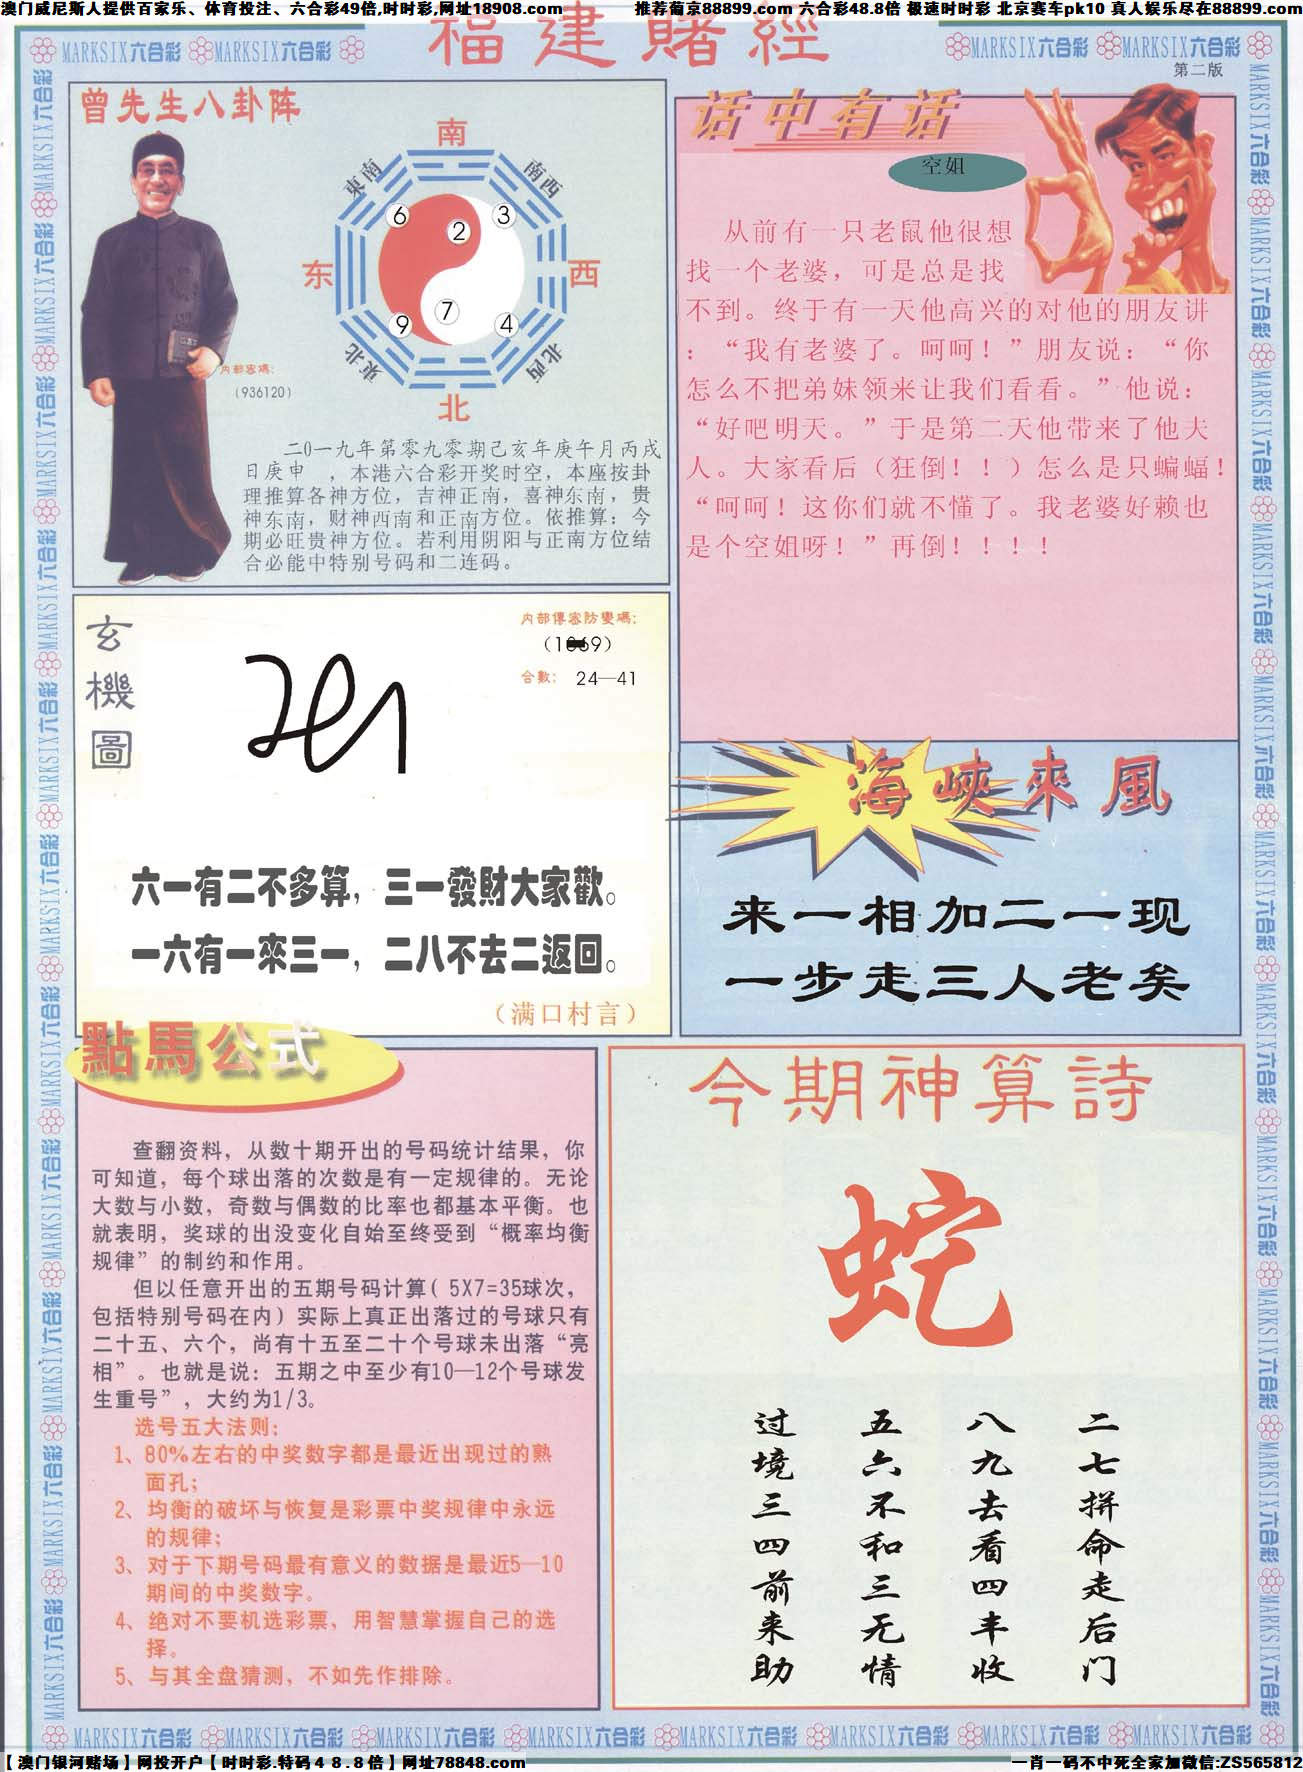 澳门威尼斯人提供百家乐、体育投注、六合彩49倍,时时彩,网址18908.com
推荐葡京88899.com 六合彩48.8倍 极速时时彩 北京赛车pk10 真人娱乐尽在88899.com
福建賭經
MARKSIX六合彩 MARKSIX六合彩
MARKSIX六合彩 MARKSIX六合彩
第二版
曾先生八卦阵
南
東南
南西
6
2
3
东
西
9
7
4
東北
北西
北
内部密碼:
(936120)
二0一九年第零九零期己亥年庚午月丙戌
日庚申 ，本港六合彩开奖时空，本座按卦
理推算各神方位，吉神正南，喜神东南，贵
神东南，财神西南和正南方位。依推算：今
期必旺贵神方位。若利用阴阳与正南方位结
合必能中特别号码和二连码。
话中有话
空姐
从前有一只老鼠他很想
找一个老婆，可是总是找
不到。终于有一天他高兴的对他的朋友讲
：“我有老婆了。呵呵！”朋友说：“你
怎么不把弟妹领来让我们看看。”他说：
“好吧明天。”于是第二天他带来了他夫
人。大家看后（狂倒！！）怎么是只蝙蝠！
“呵呵！这你们就不懂了。我老婆好赖也
是个空姐呀！”再倒！！！！
玄機圖
内部傳密防變碼:
合數: 24—41
六一有二不多算，三一發財大家歡。
一六有一來三一，二八不去二返回。
（满口村言）
海峽來風
来一相加二一现
一步走三人老矣
點馬公式
查翻资料，从数十期开出的号码统计结果，你
可知道，每个球出落的次数是有一定规律的。无论
大数与小数，奇数与偶数的比率也都基本平衡。也
就表明，奖球的出没变化自始至终受到“概率均衡
规律”的制约和作用。
但以任意开出的五期号码计算( 5X7=35球次，
包括特别号码在内）实际上真正出落过的号球只有
二十五、六个，尚有十五至二十个号球未出落“亮
相”。也就是说：五期之中至少有10—12个号球发
生重号”，大约为1/3。
选号五大法则：
1、80%左右的中奖数字都是最近出现过的熟
面孔；
2、均衡的破坏与恢复是彩票中奖规律中永远
的规律；
3、对于下期号码最有意义的数据是最近5—10
期间的中奖数字。
4、绝对不要机选彩票，用智慧掌握自己的选
择。
5、与其全盘猜测，不如先作排除。
今期神算詩
蛇
二七拼命走后门
八九去看四丰收
五六不和三无情
过境三四前来助
MARKSIX六合彩 MARKSIX六合彩 MARKSIX六合彩 MARKSIX六合彩 MARKSIX六合彩 MARKSIX六合彩 MARKSIX六合彩 MARKSIX六合彩
【澳门银河赌场】网投开户【时时彩.特码４８.８倍】网址78848.com
一肖一码不中死全家加微信:ZS565812